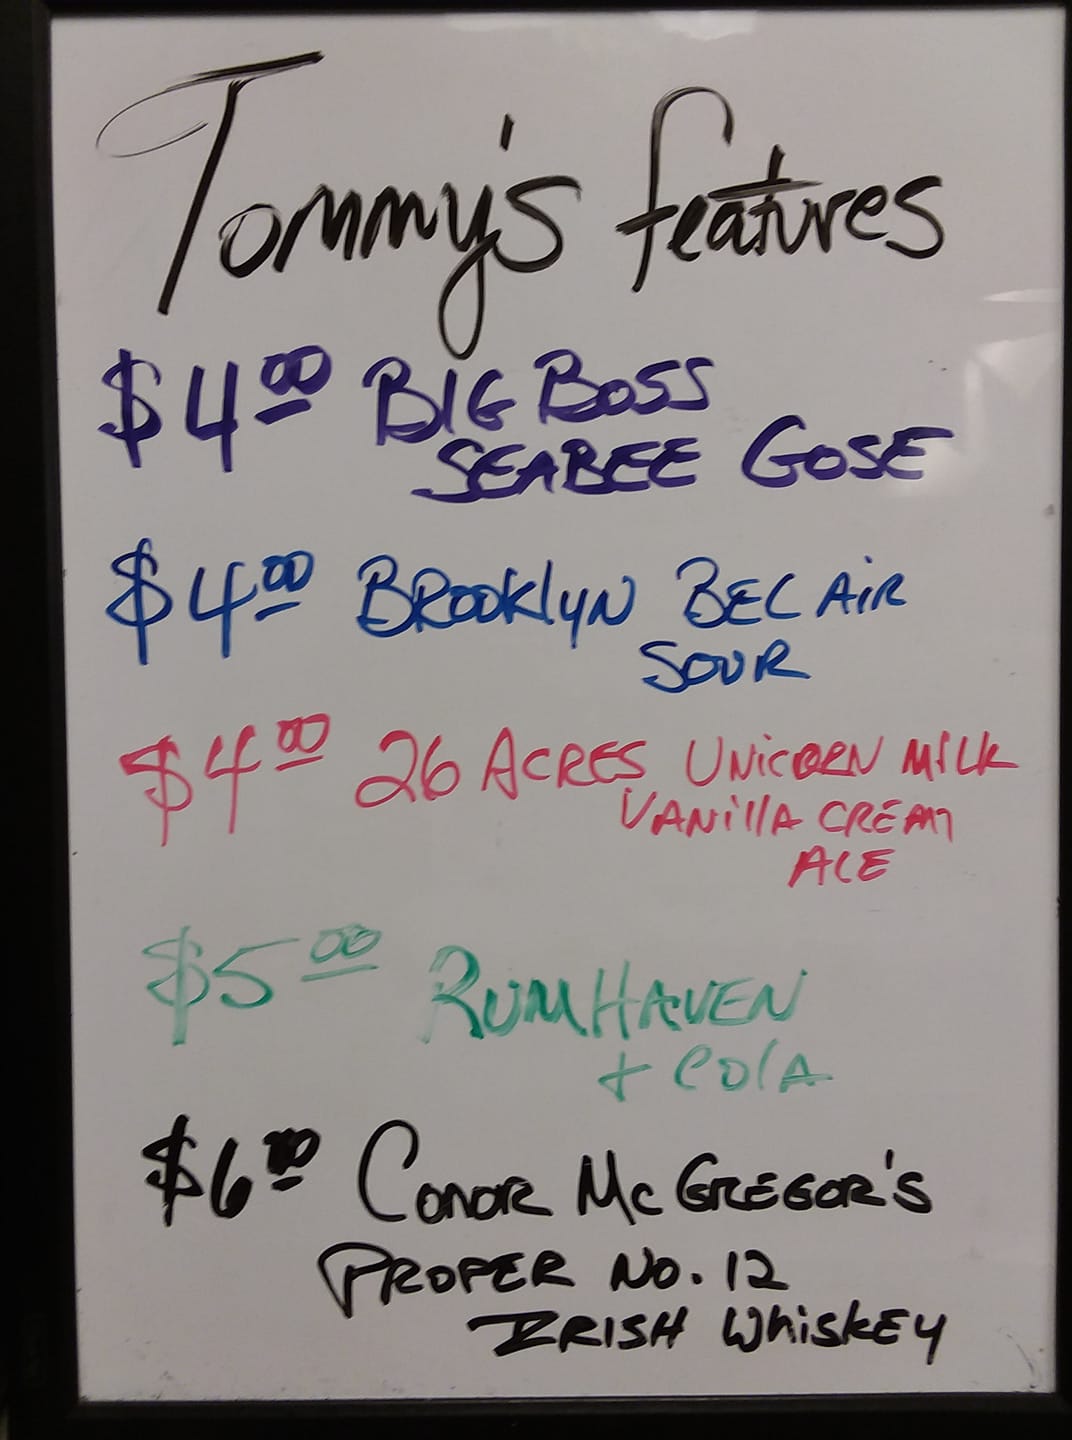 Tommy's features
$4.00 BIG BOSS
SEABEE GOSE
$4.00 BROOKlyN BEL AiR
SOUR
$4.00 26 ACRES UNiCORN MiLK
VANillA CREAM
ALE
$5.00 RUMHAVEN
+ COlA
$6.00 CONOR McGREGOR'S
PROPER NO. 12
IRISH WhiskEY